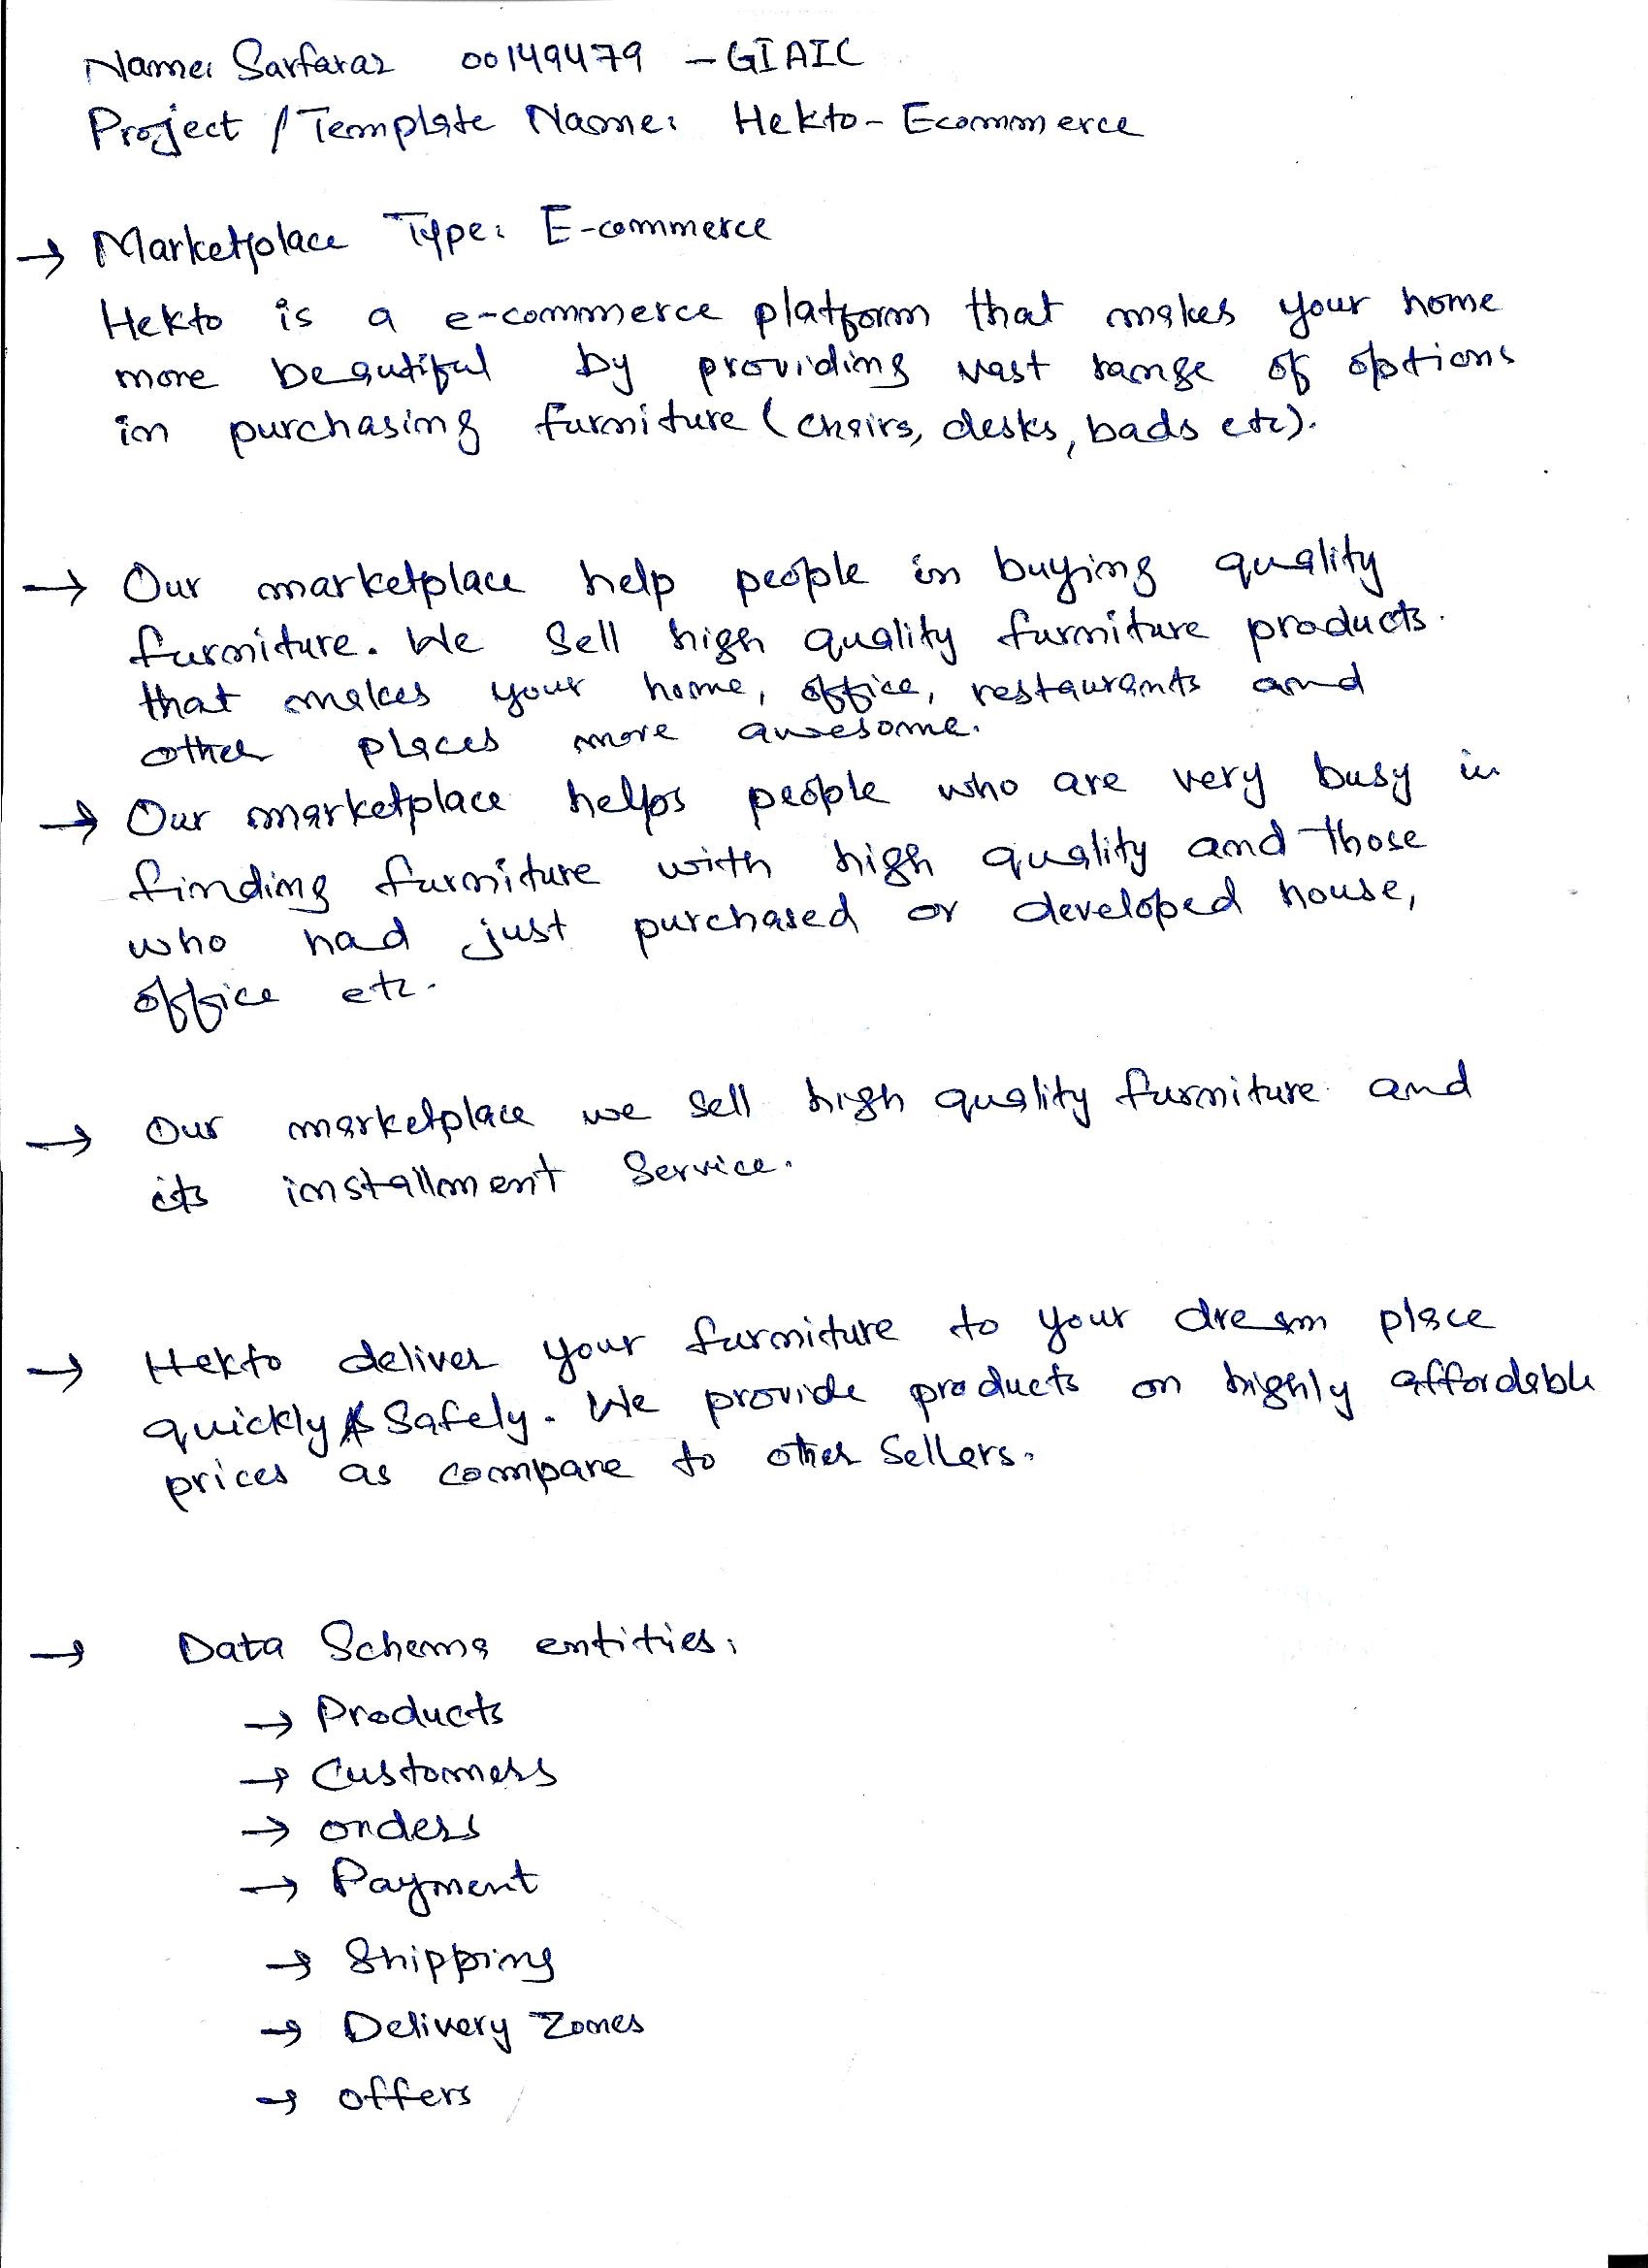 Name: Sarfaraz 00149479 – GIAIC
Project / Template Name: Hekto - Ecommerce
→ Marketplace Type: E-commerce
Hekto is a e-commerce platform that makes your home
more beautiful by providing vast range of options
in purchasing furniture (chairs, desks, bads etc).
→ Our marketplace help people in buying quality
furniture. We sell high quality furniture products
that makes your home, office, restaurants and
other places more awesome.
→ Our marketplace helps people who are very busy in
finding furniture with high quality and those
who had just purchased or developed house,
office etc.
→ Our marketplace we sell high quality furniture and
its installment service.
→ Hekto deliver your furniture to your dream place
quickly & Safely. We provide products on highly affordable
prices as compare to other Sellers.
→ Data Schema entities:
→ Products
→ Customers
→ orders
→ Payment
→ Shipping
→ Delivery Zones
→ offers